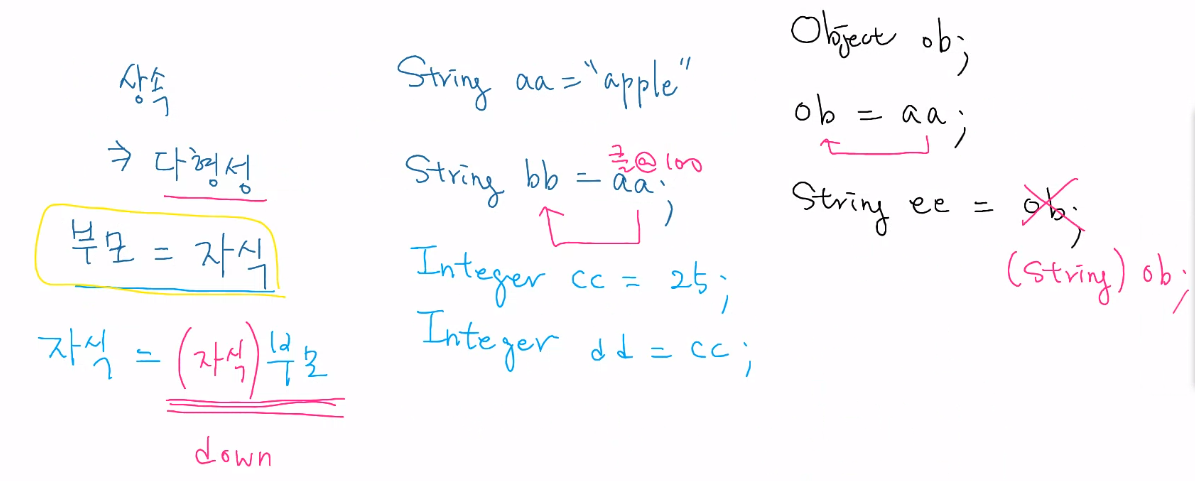 상속
⇒ 다형성
부모 = 자식
자식 = (자식)부모
down
String aa = "apple"
@100
String bb = aa;
Integer cc = 25;
Integer dd = cc;
Object ob;
ob = aa;
String ee = ob;
(String) ob;